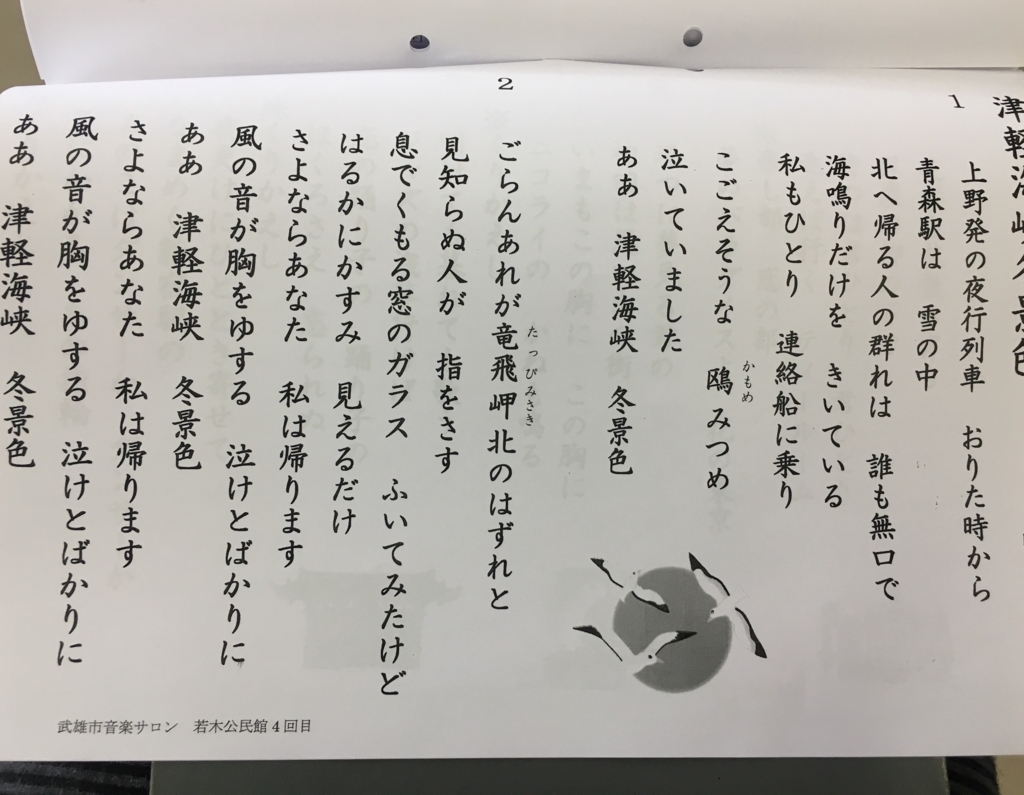 津軽海峡冬景色
1
上野発の夜行列車　おりた時から
青森駅は　雪の中
北へ帰る人の群れは　誰も無口で
海鳴りだけを　きいている
私もひとり　連絡船に乗り
こごえそうな　鴎みつめ
かもめ
泣いていました
ああ　津軽海峡　冬景色
2
ごらんあれが竜飛岬北のはずれと
たっぴみさき
見知らぬ人が　指をさす
息でくもる窓のガラス　ふいてみたけど
はるかにかすみ　見えるだけ
さよならあなた　私は帰ります
風の音が胸をゆする　泣けとばかりに
ああ　津軽海峡　冬景色
さよならあなた　私は帰ります
風の音が胸をゆする　泣けとばかりに
ああ　津軽海峡　冬景色
武雄市音楽サロン　若木公民館4回目